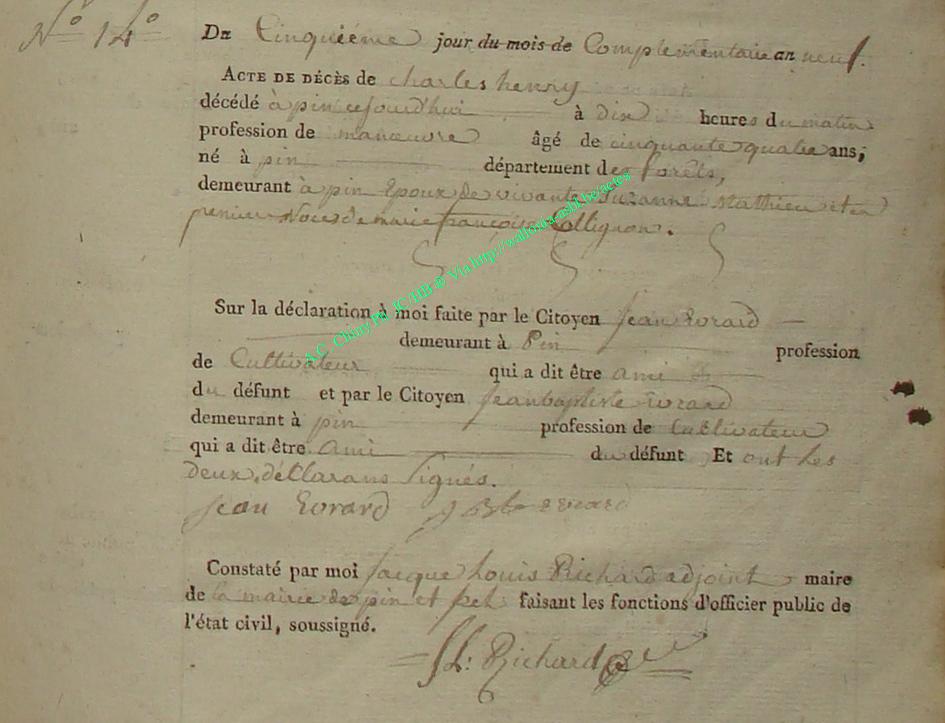 N.o 14.o
Du Cinquiéme jour du mois de Complementaire an neuf.
ACTE DE DÉCÈS de charles henry
décédé à pin cejourd'hui à dix heures du matin
profession de manœuvre âgé de cinquante quatre ans;
né à pin département des forêts,
demeurant à pin Epoux de vivante Suzanne Mathieu et en
premier Noces de marie françoise Collignon.
A.C. Chiny Ph. JC/HB @ Via http://wallonia-asbl.be/actes
Sur la déclaration à moi faite par le Citoyen jean Evrard
demeurant à Pin profession
de Cultivateur qui a dit être ami
du défunt et par le Citoyen jean baptiste Evrard
demeurant à pin profession de Cultivateur
qui a dit être Ami du défunt Et ont les
deux déClarans signés.
jean Evrard j Bte evrard
Constaté par moi jacque Louis Richard adjoint maire
de la mairie de pin et faisant les fonctions d'officier public de
l'état civil, soussigné.
JL: Richard